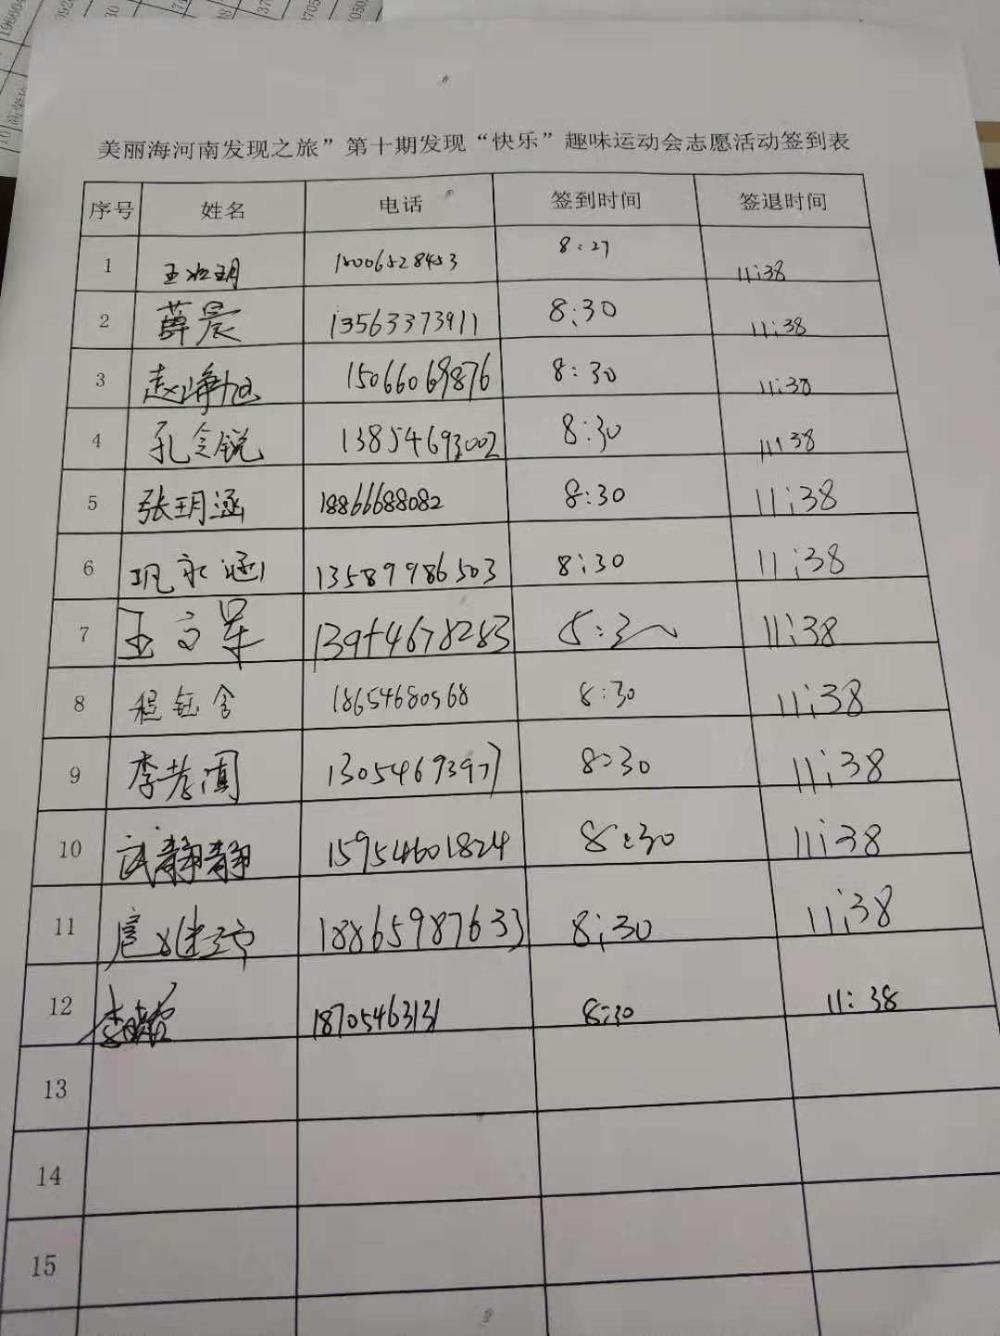 美丽海河南发现之旅”第十期发现“快乐”趣味运动会志愿活动签到表
序号 姓名 电话 签到时间 签退时间
1 15006528453 8:27 11:38
2 薛晨 13563373911 8:30 11:38
3 赵峥旭 15066069876 8:30 11:38
4 孔令锐 13854693002 8:30 11:38
5 张玥涵 18866688082 8:30 11:38
6 巩永涵 13589986503 8:30 11:38
7 王文军 11:38
8 程钰含 18654680568 8:30 11:38
9 李孝圊 13054693977 8:30 11:38
10 武静静 15954601824 8:30 11:38
11 18865987633 8:30 11:38
12 18705463131 8:30 11:38
13
14
15